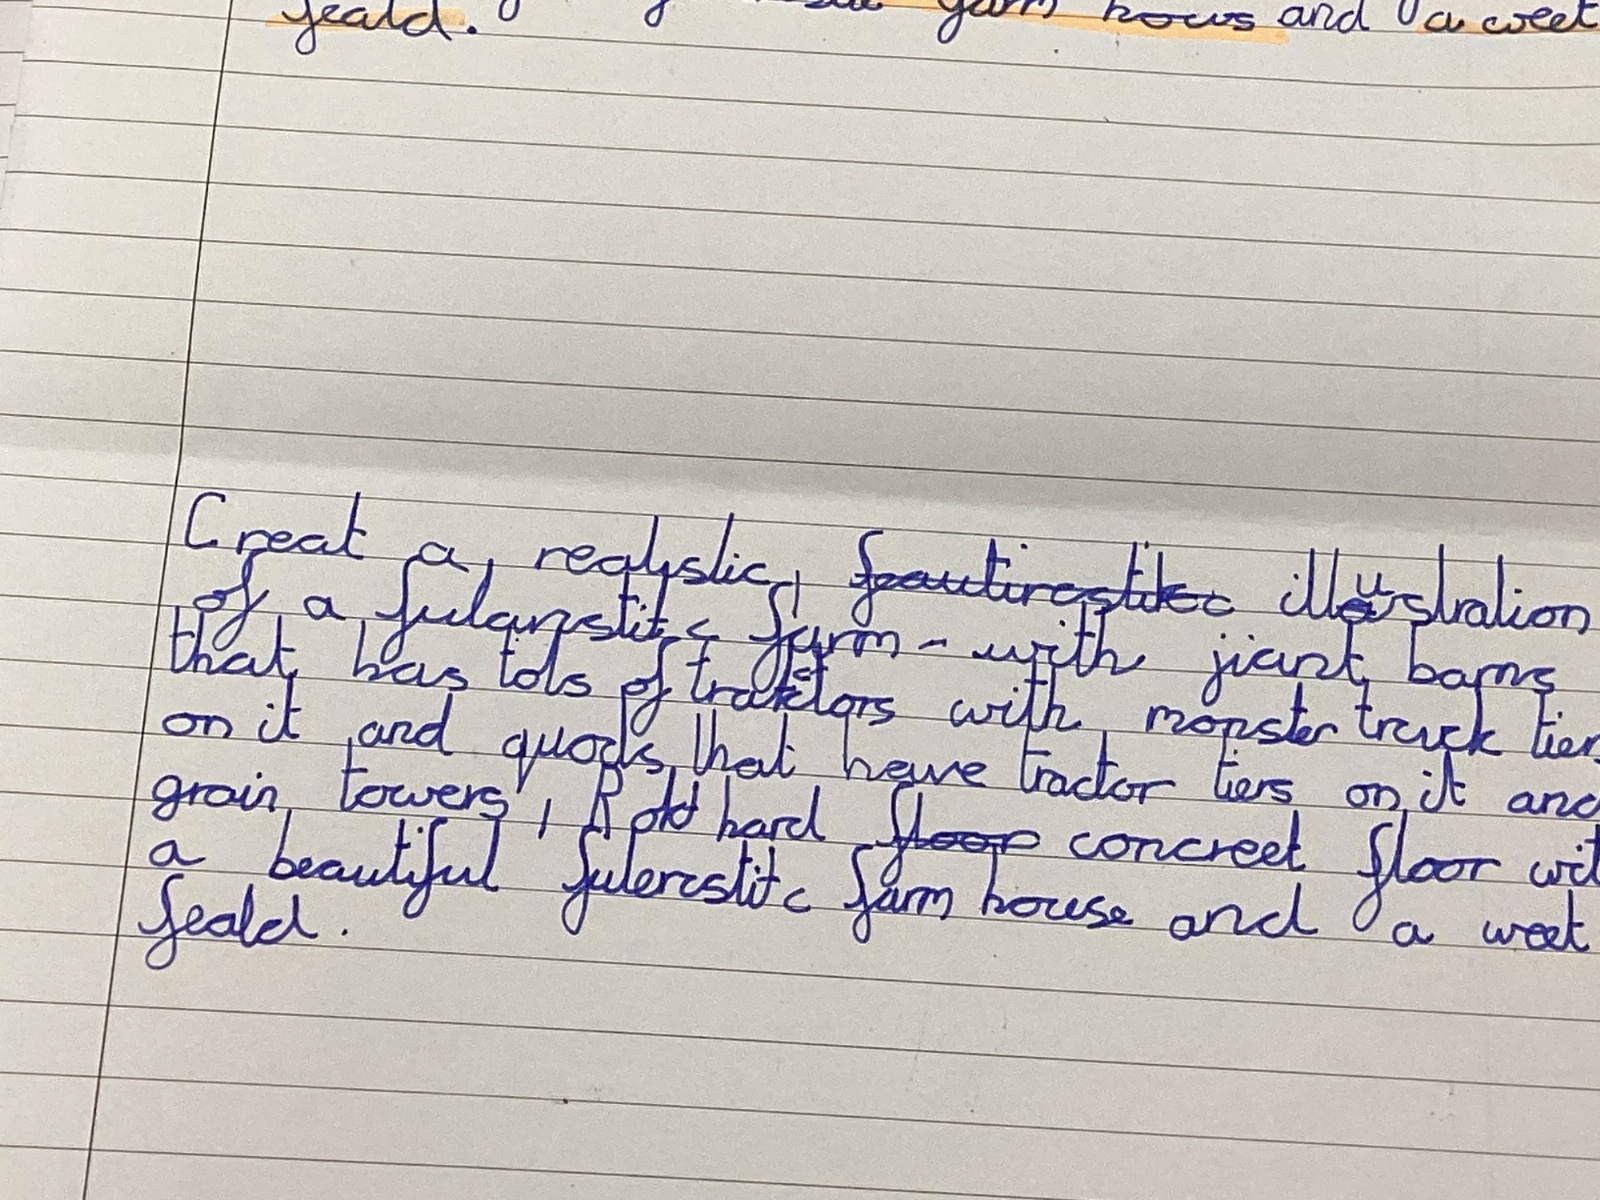 feald. farm hows and a weet
Creat a realystic, illustration
of a fularistitc farm - with jiant barns
that has tols of tracktors with monster truck tiers
on it and quods that have tractor tiers on it and
grain towers, hard concreet floor wit
a beautiful fulerestitc farm house and a weet
feald.